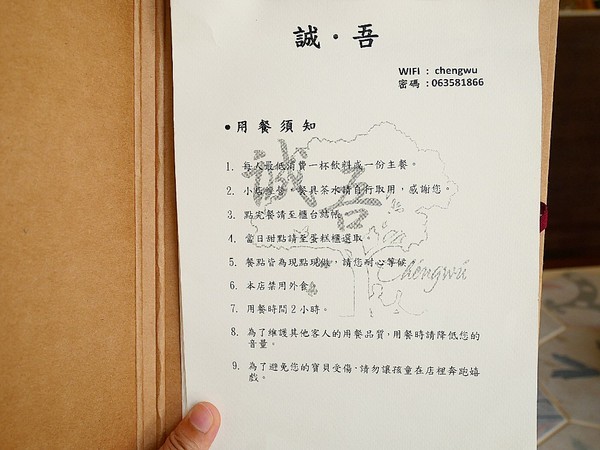 誠・吾
WIFI : chengwu
密碼 : 063581866
●用餐須知
1. 每人最低消費一杯飲料或一份主餐。
2. 小店經營，餐具茶水請自行取用，感謝您。
3. 點完餐請至櫃台結帳
4. 當日甜點請至蛋糕櫃選取
5. 餐點皆為現點現做，請您耐心等候
6. 本店禁用外食。
7. 用餐時間2小時。
8. 為了維護其他客人的用餐品質，用餐時請降低您的
音量。
9. 為了避免您的寶貝受傷，請勿讓孩童在店裡奔跑嬉
戲。
誠
吾
Chengwu